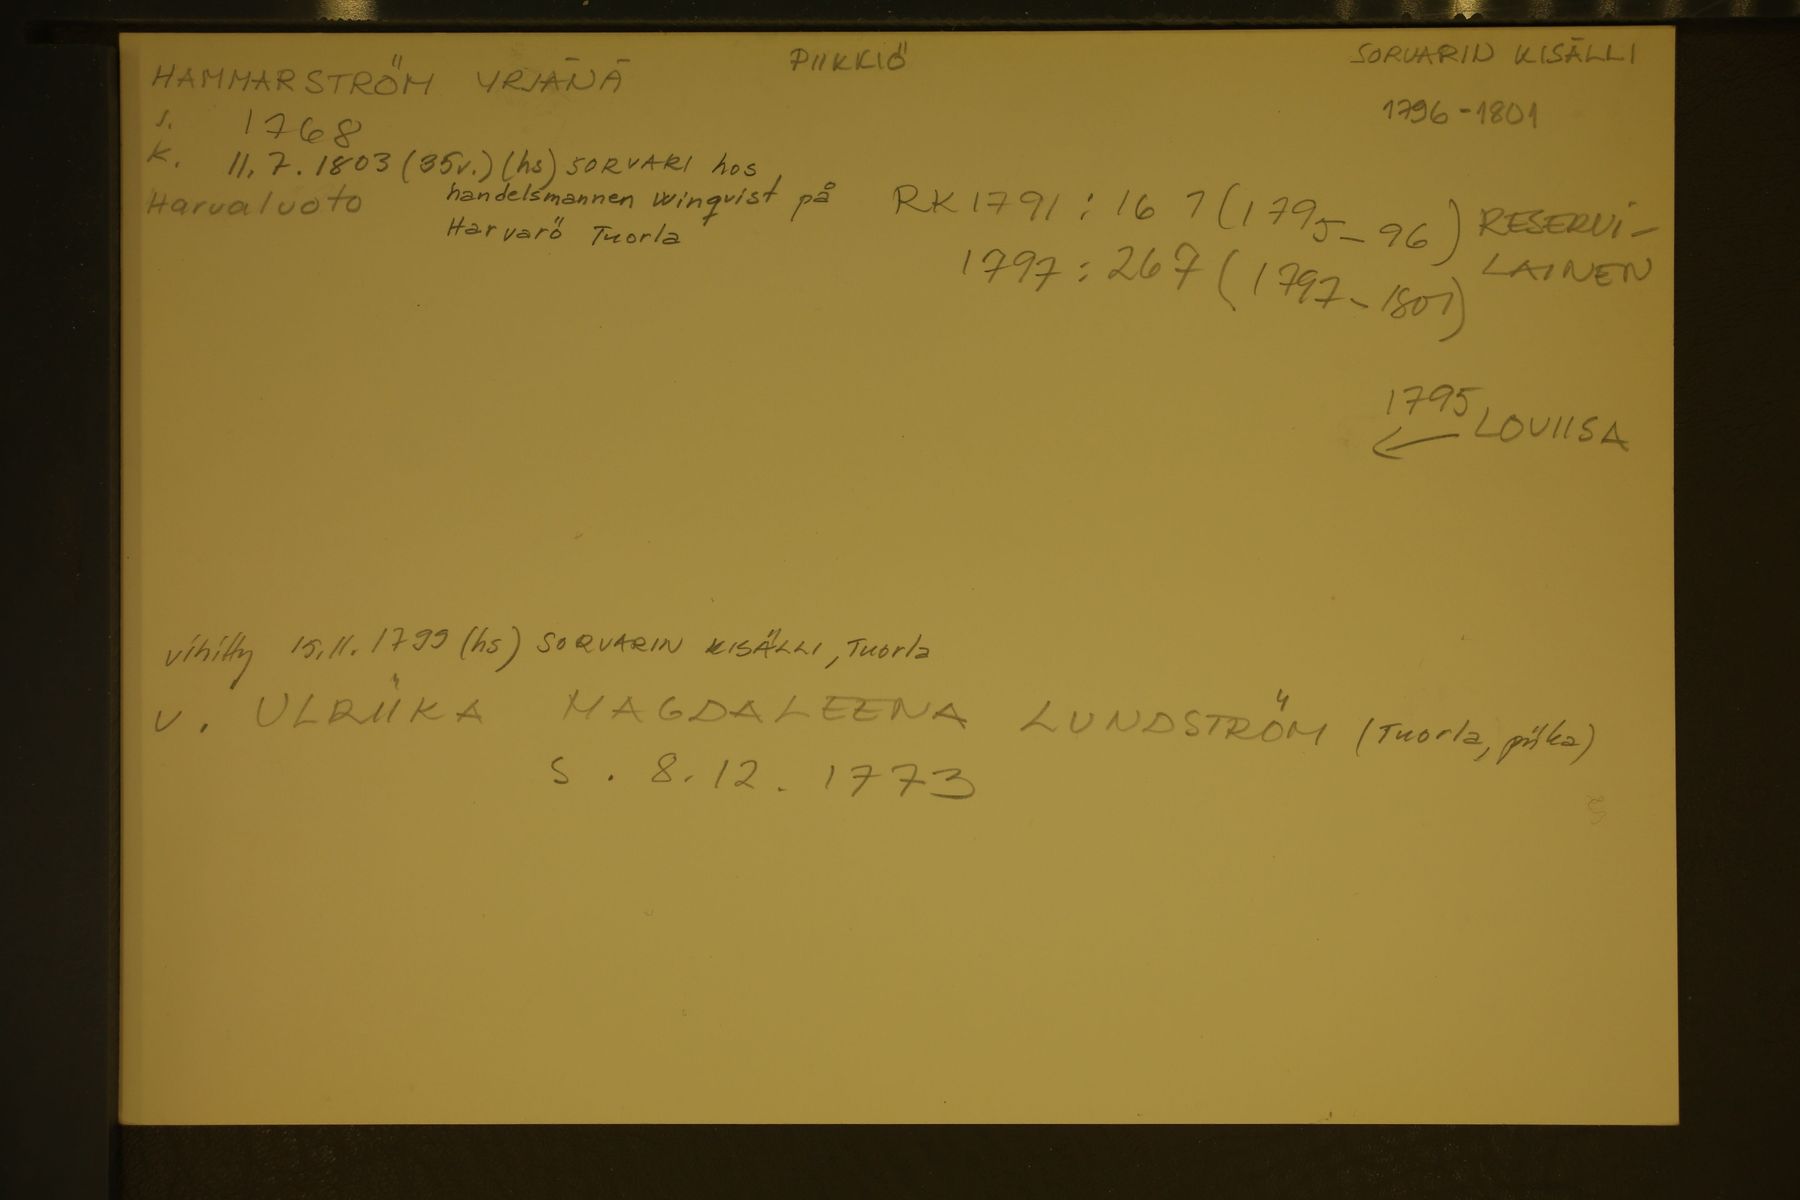 HAMMARSTRÖM YRJÄNÄ PIIKKIÖ SORVARIN KISÄLLI
1796-1801
s. 1768
k. 11.7.1803 (35v.) (hs) SORVARI hos
handelsmannen Winqvist på
Harvaluoto
Harvarö Tuorla
RK 1791 : 167 (1795-96) RESERVI-
LAINEN
1797 : 267 (1797-1801)
1795
← LOUIISA
vihitty 15.11.1799 (hs) SORVARIN KISÄLLI, Tuorla
v. ULRIIKA MAGDALEENA LUNDSTRÖM (Tuorla, piika)
s. 8.12.1773